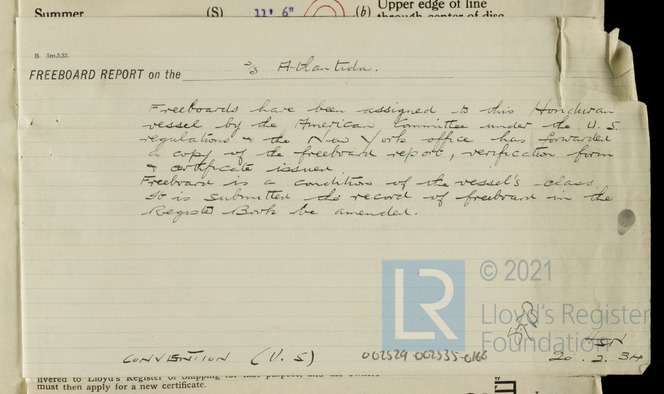 Summer (S) 11' 6" (b) Upper edge of line
through center of disc
B. 3m,5,32.
FREEBOARD REPORT on the S/S Atlantida.
Freeboards have been assigned to this Honduran
vessel by the American Committee under the U.S.
regulations & the New York office has forwarded
a copy of the freeboard report, verification form
& certificate issued.
Freeboard is a condition of the vessel's class.
It is submitted the record of freeboard in the
Register Book be amended.
LR
© 2021
Lloyd's Register
Foundation
CONVENTION (U.S)
002529-002535-0166
20.2.34
livered to Lloyd's Register of Shipping for that purpose, and the owners
must then apply for a new certificate.